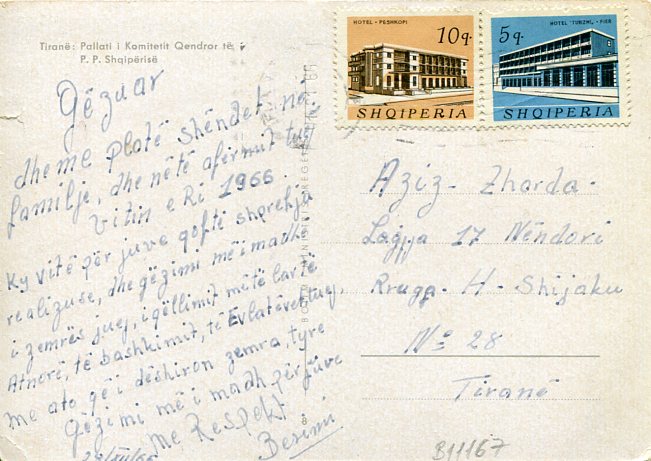 Tiranë: Pallati i Komitetit Qendror të
P. P. Shqipërisë
HOTEL - PESHKOPI
10q
SHQIPERIA
HOTEL TURIZMI, FIER
5q
SHQIPERIA
Gëzuar
dhe me plotë shëndet në
familje, dhe nëtë afërmit tuej
Vitin e Ri 1966.
Ky vitë për juve qoftë
realizuse, dhe gëzimi më i madh
i zemrës juej, i qëllimit më të lartë
Atnorë, të bashkimit, të Evlatëvet tuej,
me ato që i dëshiron zemra tyre
Gëzimi më i madh për juve
me Respekt
Besimi
Aziz - Zharda.
Lagjja 17 Nëndori
Rruga - H - Shijaku
No 28
Tiranë
8
B11167